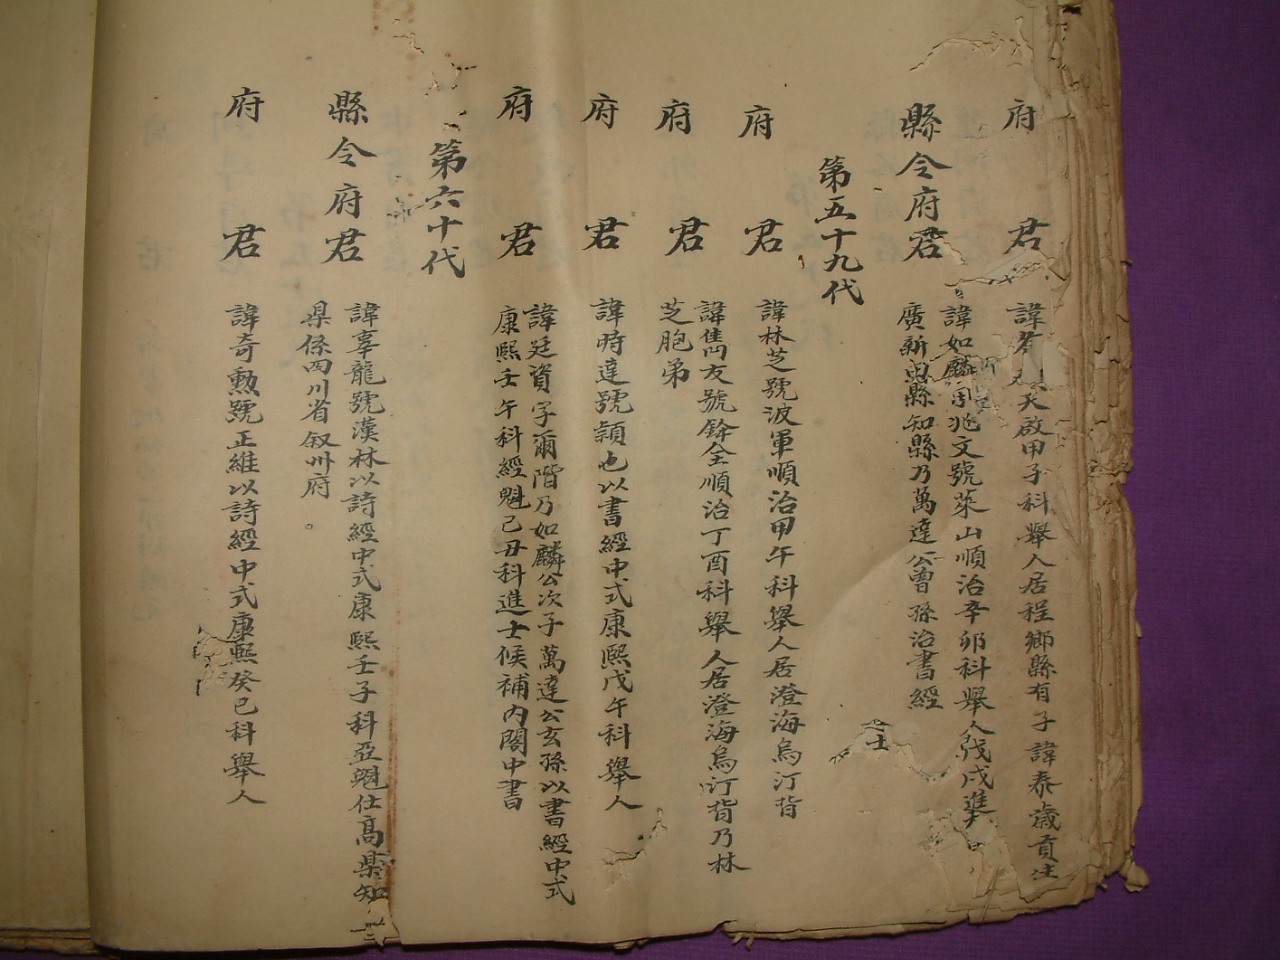 府君 諱 天啟甲子科舉人居程鄉縣有子諱泰歲貢生
縣令府君 諱如麟字兆文號萊山順治辛卯科舉人戊戌進士
廣新 縣知縣乃萬達公曾孫治書經
第五十九代
府君 諱林芝號波軍順治甲午科舉人居澄海烏汀背
府君 諱雋友號銓全順治丁酉科舉人居澄海烏汀背乃林
芝胞弟
府君 諱時達號穎也以書經中式康熙戊午科舉人
府君 諱廷資字爾階乃如麟公次子萬達公玄孫以書經中式
康熙壬午科經魁己丑科進士候補內閣中書
第六十代
縣令府君 諱 龍號漢林以詩經中式康熙壬子科亞魁仕高梁知
県係四川省叙州府。
府君 諱奇勳號正維以詩經中式康熙癸巳科舉人